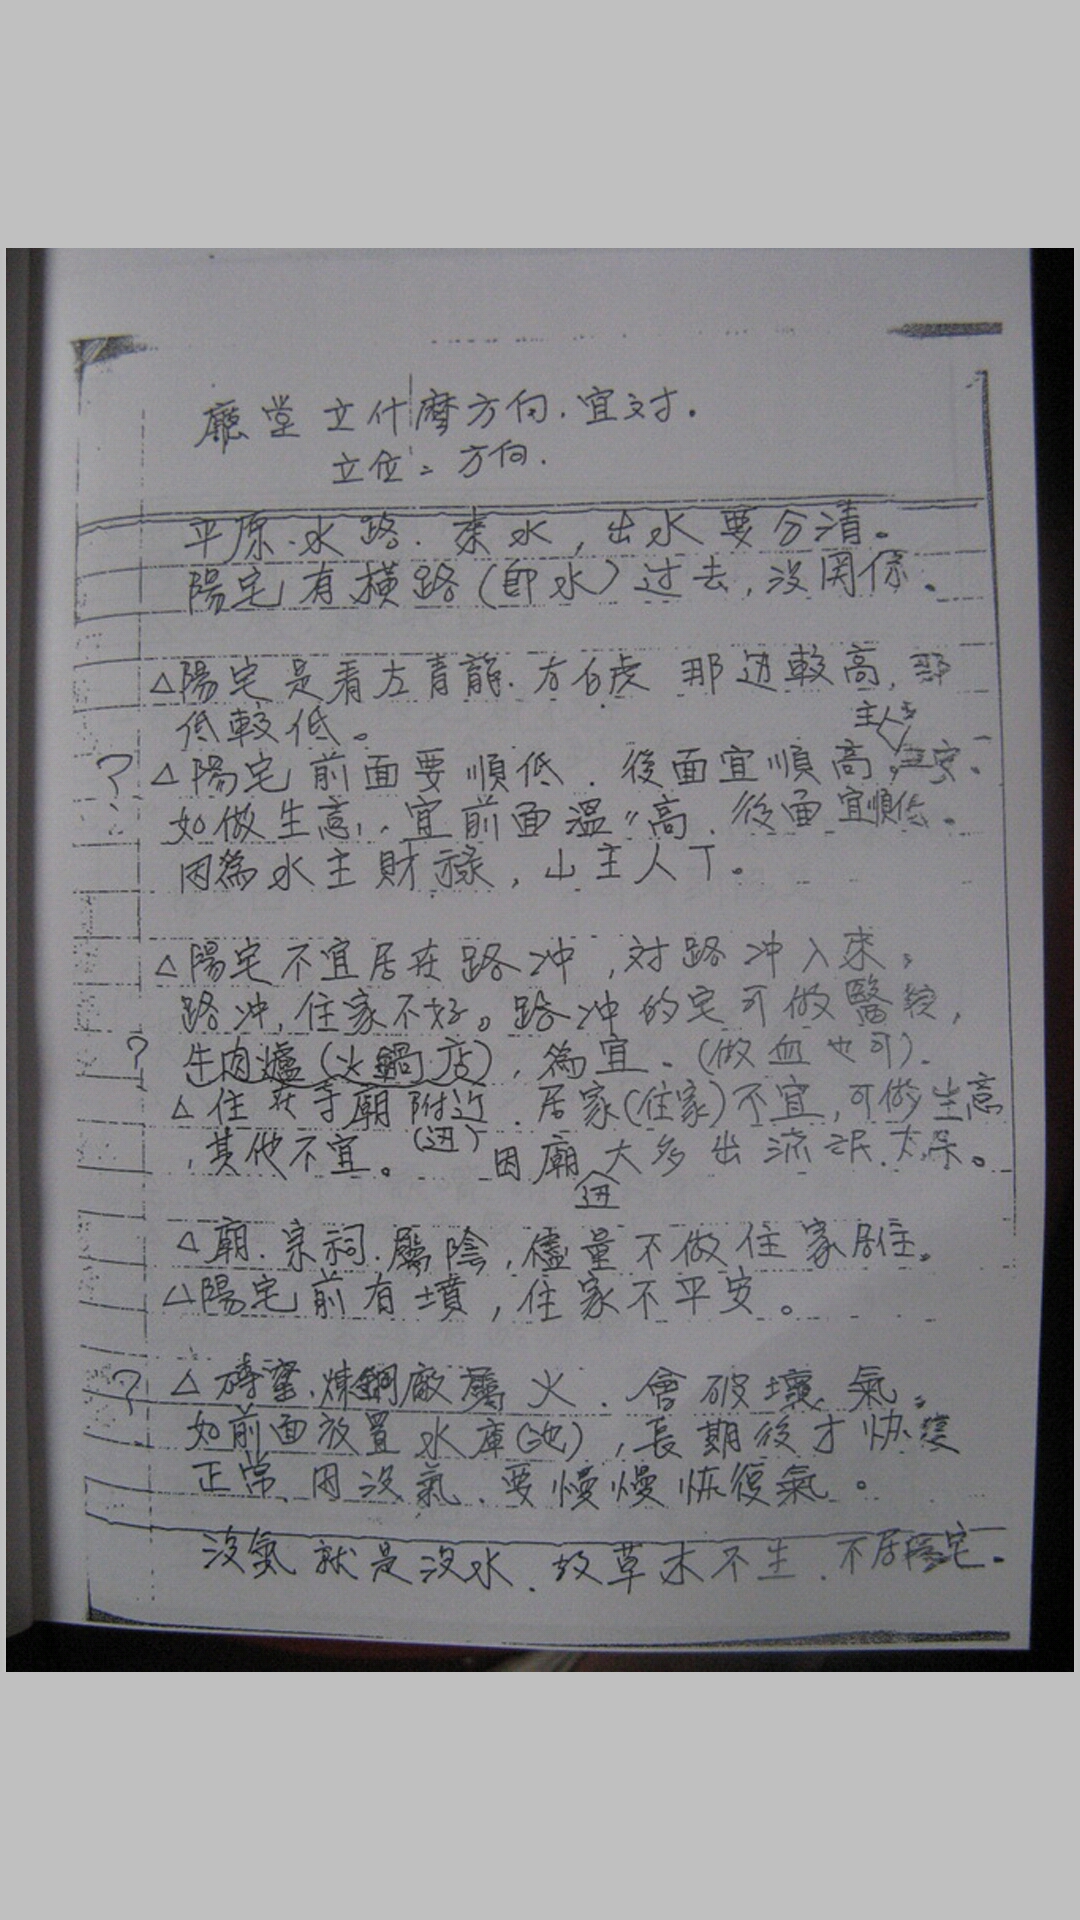 廳堂立什麼方向.宜对.
立位=方向.
平原.水路.來水,出水要分清。
陽宅有橫路(即水)过去,没関係.
△陽宅是看左青龍.右白虎 那边較高,那
低較低。
主人
? △陽宅前面要順低.後面宜順高,
如做生意,宜前面溫〃高.後面宜順低.
因為水主財祿,山主人丁。
△陽宅不宜居在路冲,対路冲入來,
路冲,住家不好。路冲的宅可做醫院,
? 牛肉爐(火鍋店),為宜.(做血也可).
△住在于廟附近.居家(住家)不宜,可做生意
,其他不宜。(近) 因廟大多出流氓.太保。
近
△廟.宗祠.屬陰,儘量不做住家居住.
△陽宅前有墳,住家不平安。
? △磚窰.煉鋼廠屬火.會破壞氣,
如前面放置水庫(池),長期後才恢復
正常.因没氣.要慢慢恢復氣。
没氣就是没水.故草木不生.不居陽宅.